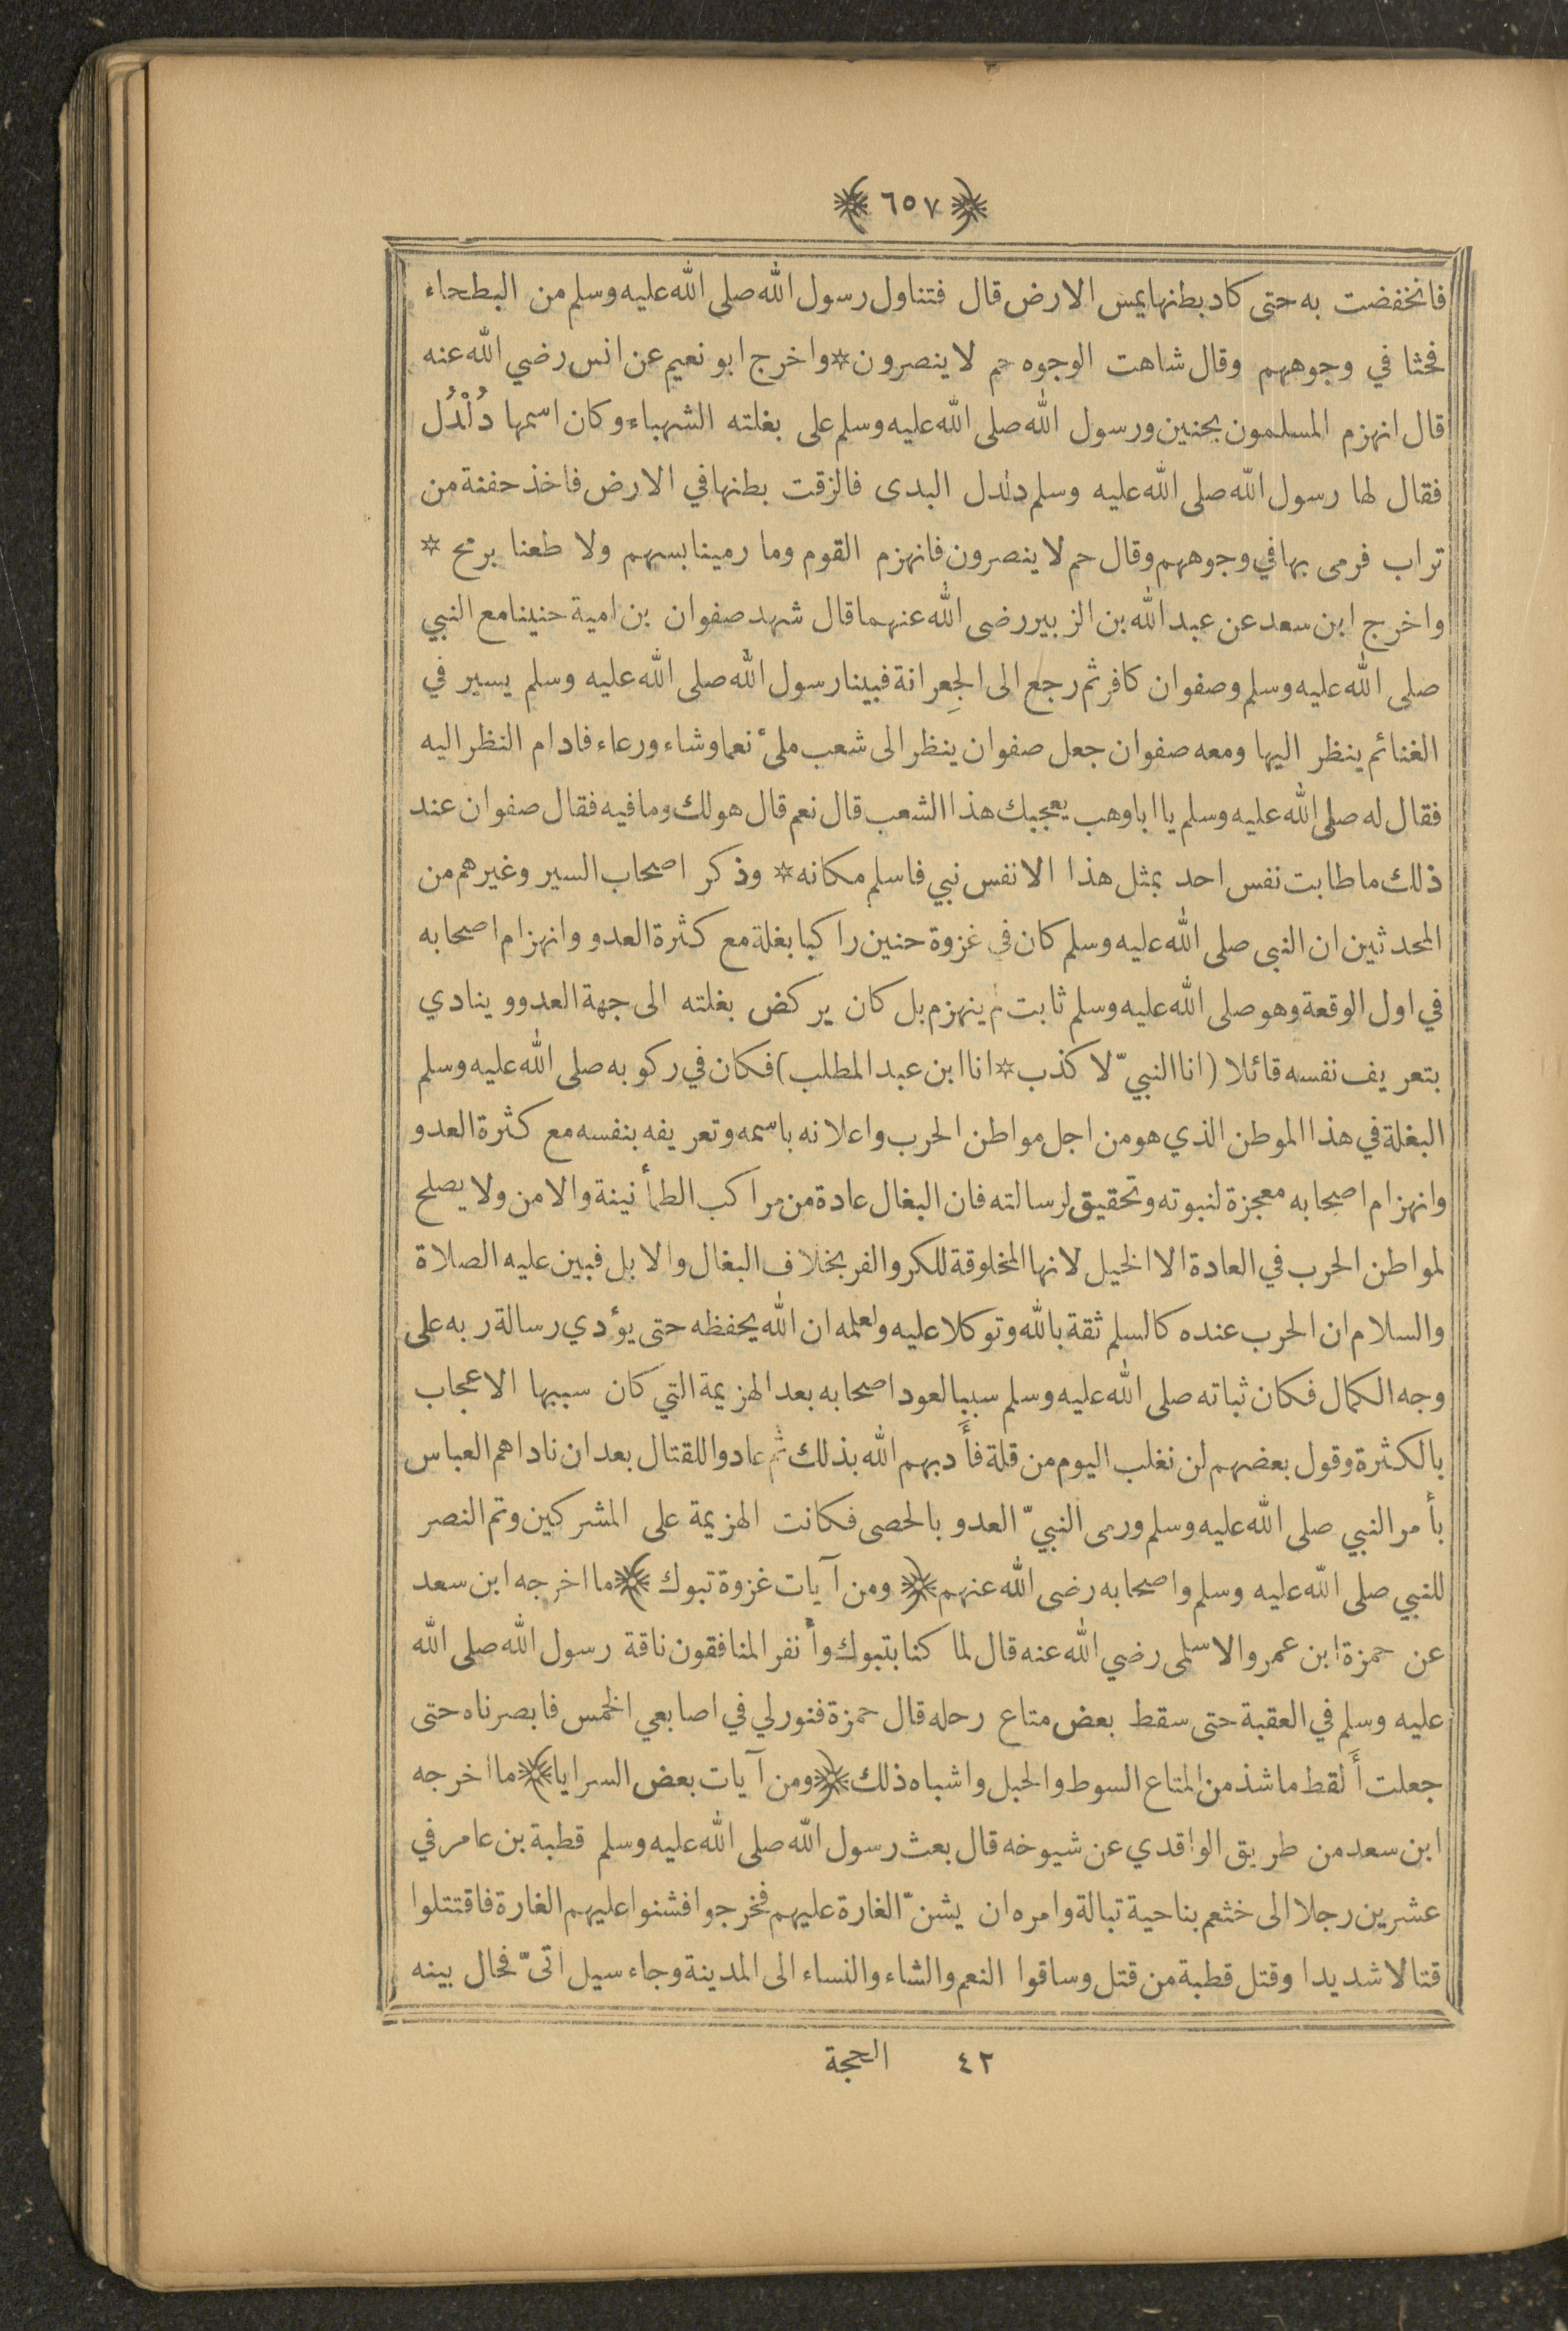 ﴿ ٦٥٧ ﴾
فانخفضت به حتى كاد بطنها يمس الارض قال فتناول رسول الله صلى الله عليه وسلم من البطحاء
فحثا في وجوههم وقال شاهت الوجوه حم لا ينصرون * واخرج ابو نعيم عن انس رضي الله عنه
قال انهزم المسلمون بحنين ورسول الله صلى الله عليه وسلم على بغلته الشهباء وكان اسمها دُلْدُل
فقال لها رسول الله صلى الله عليه وسلم دلدل البدى فالزقت بطنها في الارض فاخذ حفنة من
تراب فرمى بها في وجوههم وقال حم لا ينصرون فانهزم القوم وما رمينا بسهم ولا طعنا برمح *
واخرج ابن سعد عن عبد الله بن الزبير رضى الله عنهما قال شهد صفوان بن امية حنينا مع النبي
صلى الله عليه وسلم وصفوان كافر ثم رجع الى الجِعرانة فبينا رسول الله صلى الله عليه وسلم يسير في
الغنائم ينظر اليها ومعه صفوان جعل صفوان ينظر الى شعب ملئ نعما وشاء ورعاء فادام النظر اليه
فقال له صلى الله عليه وسلم يا ابا وهب يعجبك هذا الشعب قال نعم قال هو لك وما فيه فقال صفوان عند
ذلك ما طابت نفس احد بمثل هذا الا نفس نبي فاسلم مكانه * وذكر اصحاب السير وغيرهم من
المحدثين ان النبى صلى الله عليه وسلم كان في غزوة حنين راكبا بغلة مع كثرة العدو وانهزام اصحابه
في اول الوقعة وهو صلى الله عليه وسلم ثابت لم ينهزم بل كان يركض بغلته الى جهة العدو وينادي
بتعريف نفسه قائلا (انا النبيّ لا كذب * انا ابن عبد المطلب) فكان في ركوبه صلى الله عليه وسلم
البغلة في هذا الموطن الذي هو من اجل مواطن الحرب واعلانه باسمه وتعريفه بنفسه مع كثرة العدو
وانهزام اصحابه معجزة لنبوته وتحقيق لرسالته فان البغال عادة من مراكب الطمأنينة والامن ولا يصلح
لمواطن الحرب في العادة الا الخيل لانها المخلوقة للكر والفر بخلاف البغال والابل فبين عليه الصلاة
والسلام ان الحرب عنده كالسلم ثقة بالله وتوكلا عليه ولعلمه ان الله يحفظه حتى يؤدي رسالة ربه على
وجه الكمال فكان ثباته صلى الله عليه وسلم سببا لعود اصحابه بعد الهزيمة التي كان سببها الاعجاب
بالكثرة وقول بعضهم لن نغلب اليوم من قلة فأَدبهم الله بذلك ثم عادوا للقتال بعد ان ناداهم العباس
بأمر النبي صلى الله عليه وسلم ورمى النبيّ العدو بالحصى فكانت الهزيمة على المشركين وتم النصر
للنبي صلى الله عليه وسلم واصحابه رضى الله عنهم ﴿ ومن آيات غزوة تبوك ﴾ ما اخرجه ابن سعد
عن حمزة ابن عمرو الاسلمى رضي الله عنه قال لما كنا بتبوك وأنفر المنافقون ناقة رسول الله صلى الله
عليه وسلم في العقبة حتى سقط بعض متاع رحله قال حمزة فنور لي في اصابعي الخمس فابصرناه حتى
جعلت أَلقط ما شذ من المتاع السوط والحبل واشباه ذلك ﴿ ومن آيات بعض السرايا ﴾ ما اخرجه
ابن سعد من طريق الواقدي عن شيوخه قال بعث رسول الله صلى الله عليه وسلم قطبة بن عامر في
عشرين رجلا الى خثعم بناحية تبالة وامره ان يشنّ الغارة عليهم فخرجوا فشنوا عليهم الغارة فاقتتلوا
قتالا شديدا وقتل قطبة من قتل وساقوا النعم والشاء والنساء الى المدينة وجاء سيل اتىّ فحال بينه
٤٢ الحجة